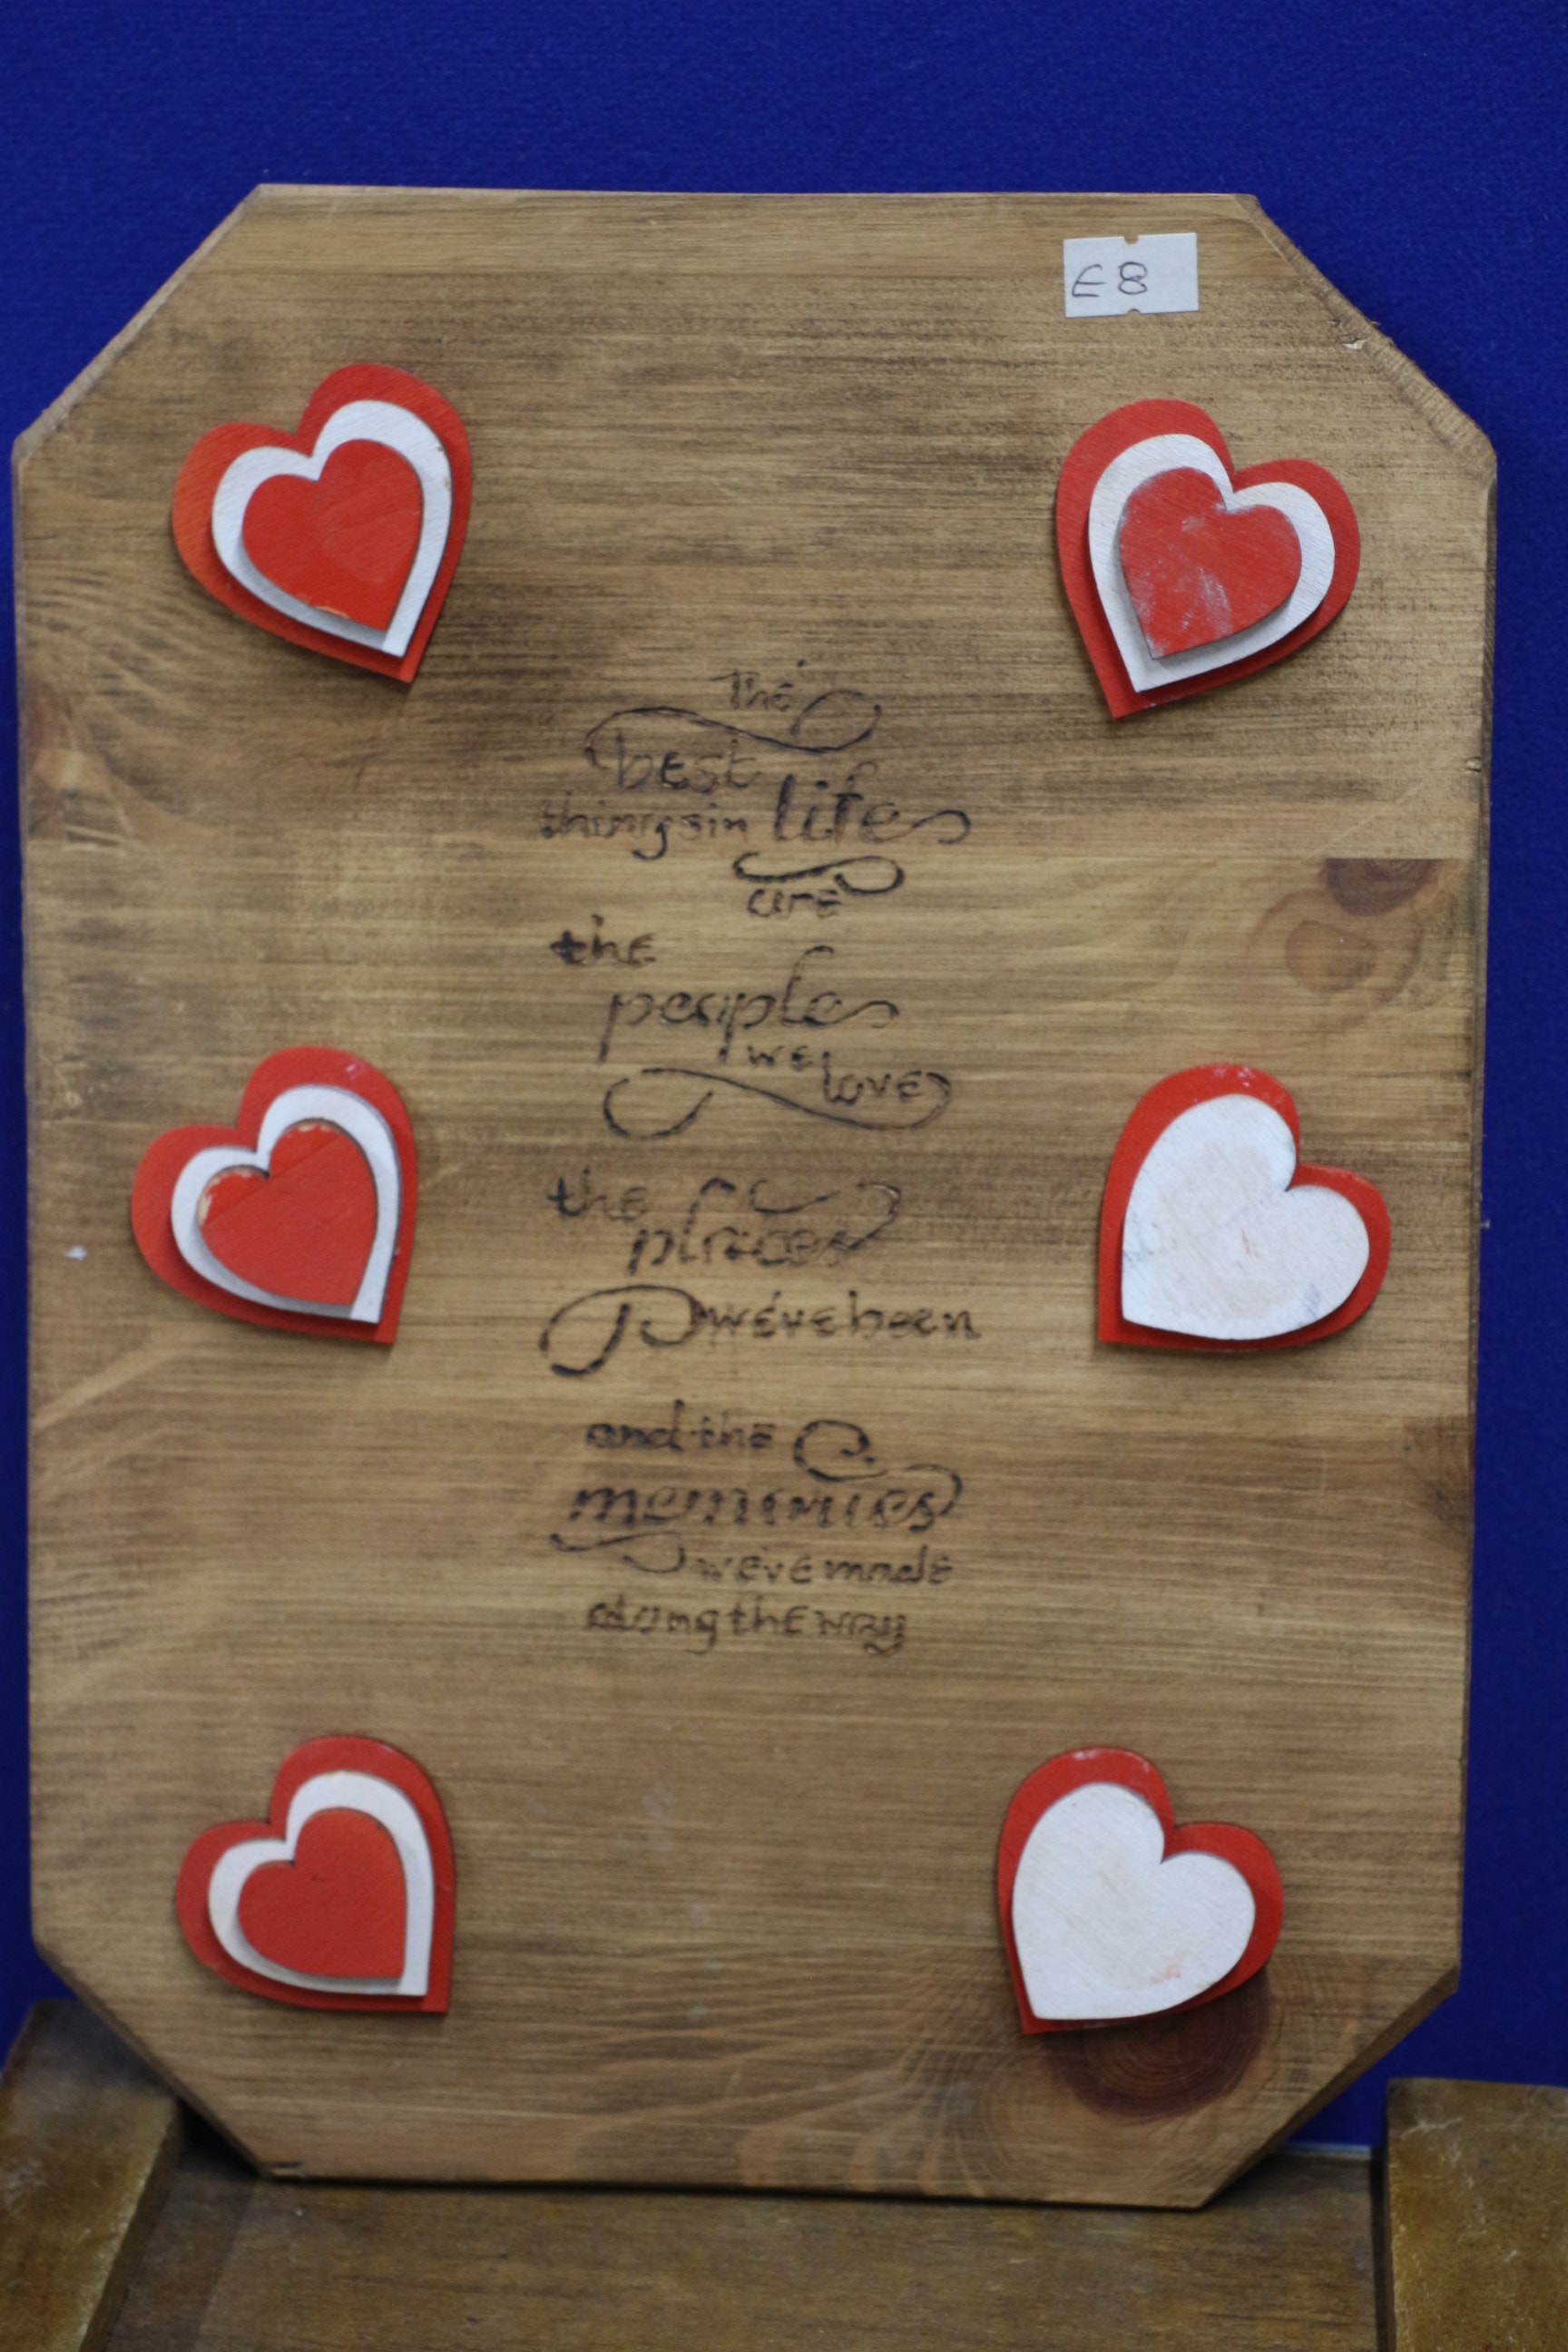 £8
The
best
things in life
are
the
people
we
love
the
places
we've been
and the
memories
we've made
along the way